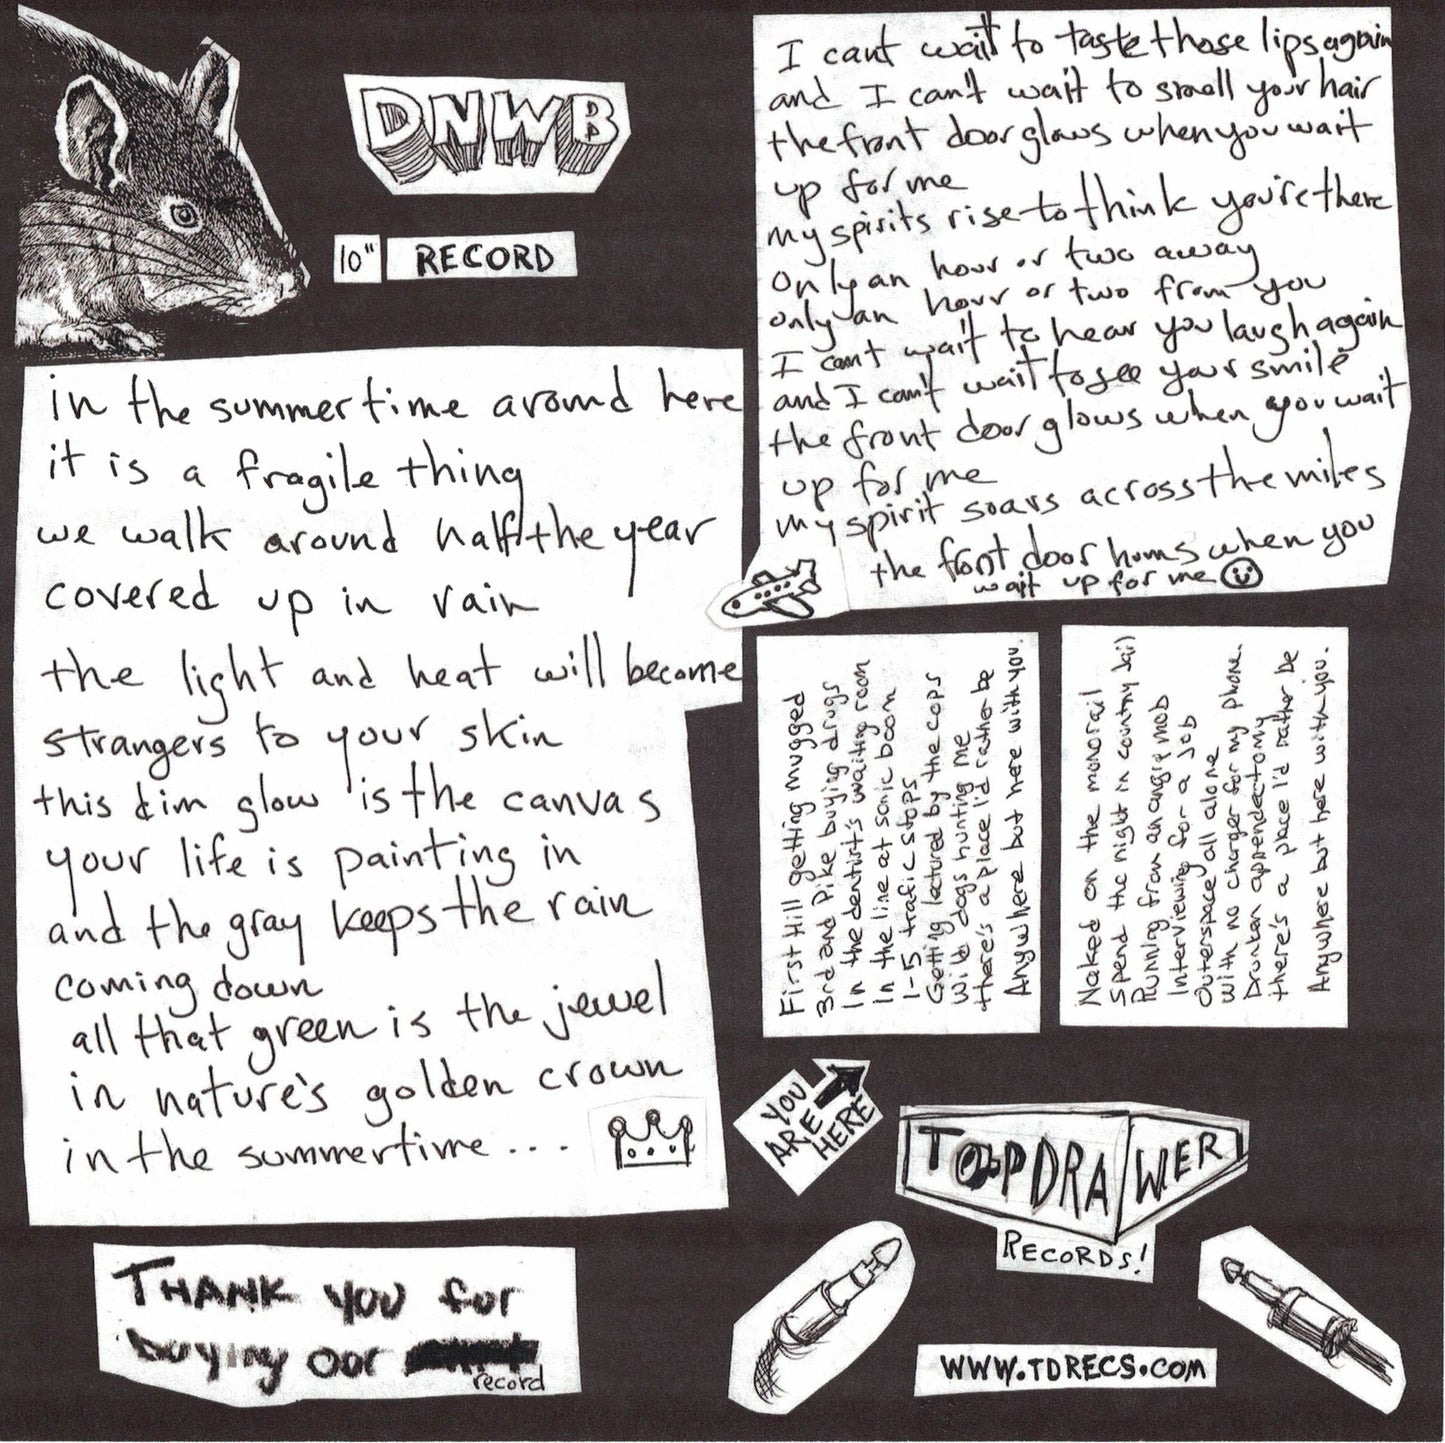 DNWB
10" RECORD
in the summertime around here
it is a fragile thing
we walk around half the year
covered up in rain
the light and heat will become
strangers to your skin
this dim glow is the canvas
your life is painting in
and the gray keeps the rain
coming down
all that green is the jewel
in nature's golden crown
in the summertime...
THANK YOU for
buying our
record
I cant wait to taste those lips again
and I can't wait to smell your hair
the front door glows when you wait
up for me
my spirits rise to think you're there
only an hour or two away
only an hour or two from you
I can't wait to hear you laugh again
and I can't wait to see your smile
the front door glows when you wait
up for me
my spirit soars across the miles
the front door hums when you
wait up for me
First Hill getting mugged
3rd and Pike buying drugs
In the dentist's waiting room
In the line at sonic boom
I-5 trafic stops
Getting lectured by the cops
Wild dogs hunting me
there's a place I'd rather be
Anywhere but here with you.
Naked on the monorail
Spend the night in country Jail
Running from an angry mob
Interviewing for a Job
Outerspace all alone
with no charger for my phone.
Drunken appendectomy
there's a place I'd rather be
Anywhere but here with you.
YOU
ARE
HERE
TOPDRAWER
RECORDS!
WWW.TDRECS.COM